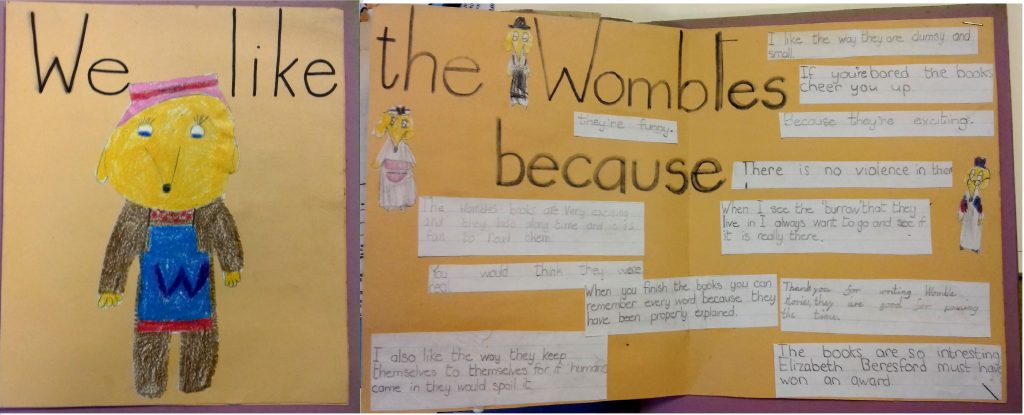 We like
W
the Wombles
because
they're funny.
I like the way they are clumsy and
small.
If you're bored the books
cheer you up.
Because they're exciting.
There is no violence in them
When I see the "burrow" that they
live in I always want to go and see if
it is really there.
The Wombles books are very exciting
and they last along time and it is
fun to read them.
You would think they were
real.
When you finish the books you can
remember every word because they
have been properly explained.
Thankyou for writing Womble
stories, they are good for passing
the time.
I also like the way they keep
themselves to themselves for if humans
came in they would spoil it.
The books are so intresting
Elizabeth Beresford must have
won an award.